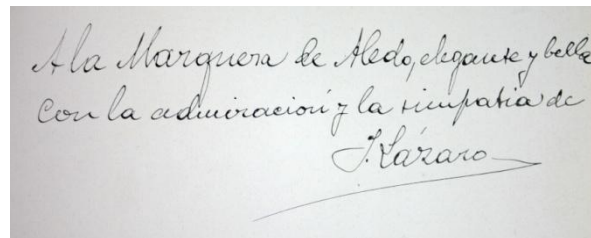 A la Marquesa de Aledo, elegante y bella
con la admiración y la simpatia de
J. Lázaro